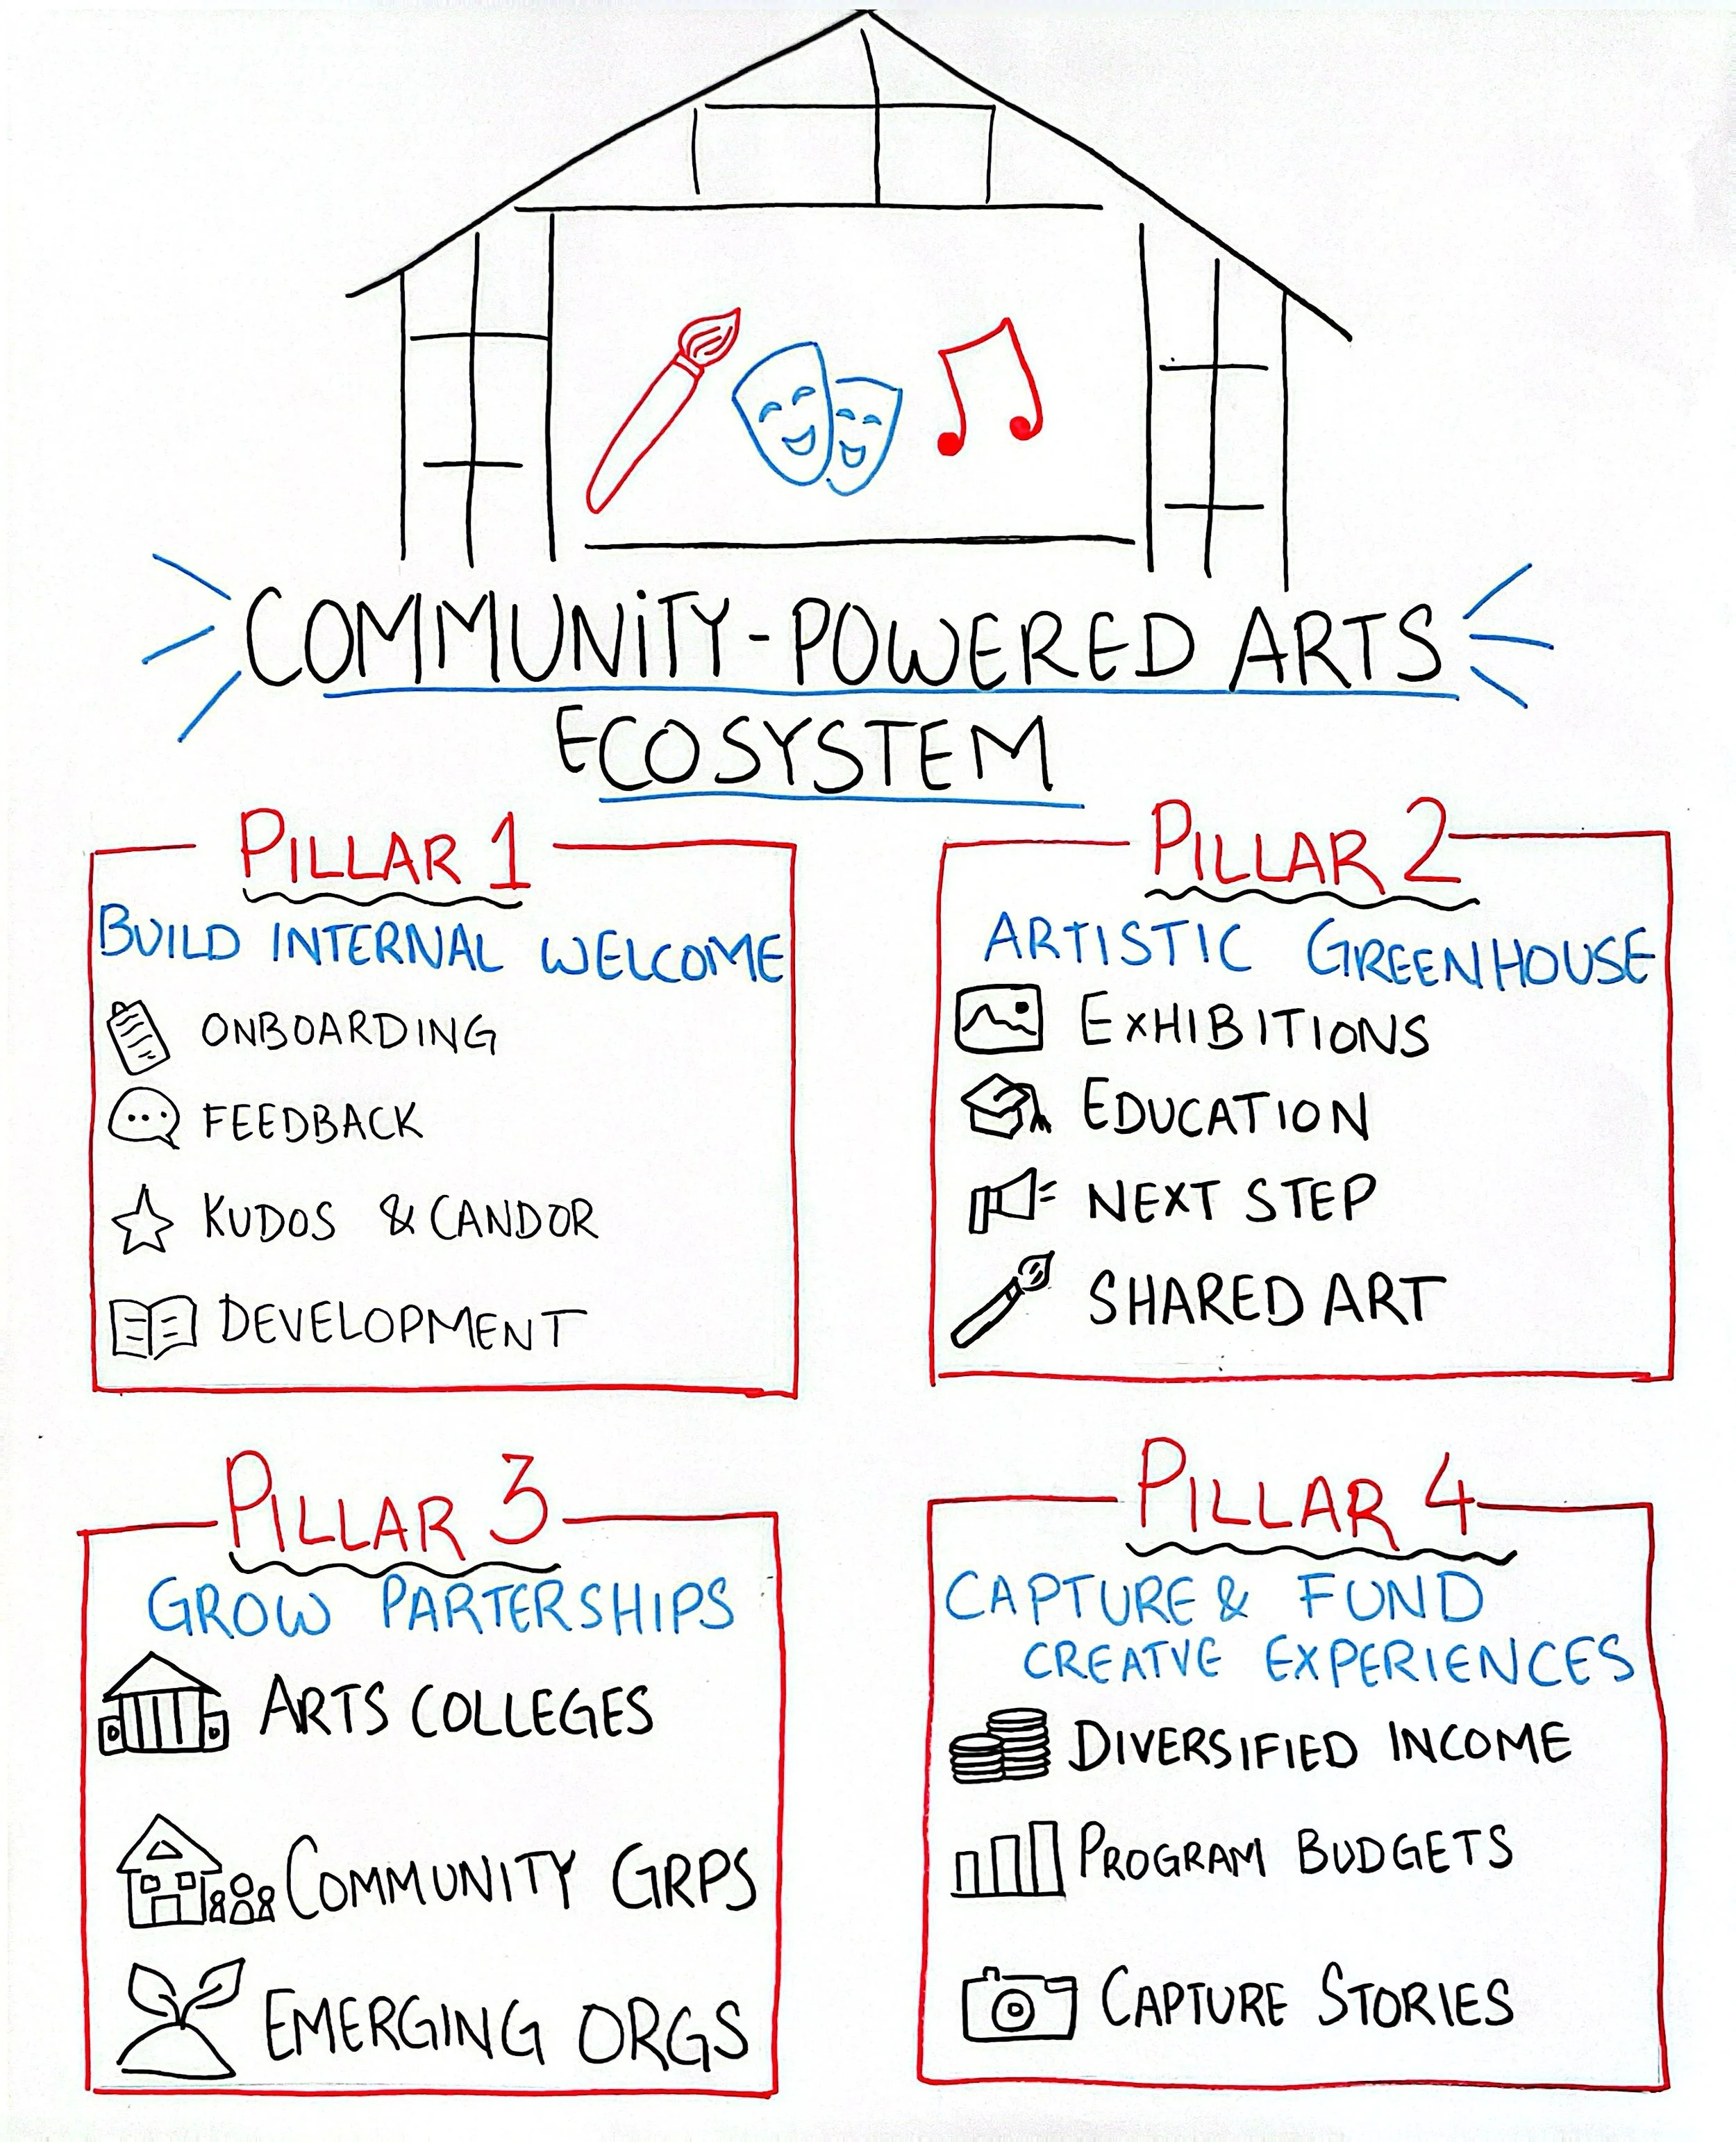 COMMUNiTY-POWERED ARTS
ECOSYSTEM
PILLAR 1
BUILD INTERNAL WELCOME
ONBOARDING
FEEDBACK
KUDOS & CANDOR
DEVELOPMENT
PILLAR 2
ARTISTIC GREENHOUSE
EXHIBITIONS
EDUCATION
NEXT STEP
SHARED ART
PILLAR 3
GROW PARTERSHIPS
ARTS COLLEGES
COMMUNITY GRPS
EMERGING ORGS
PILLAR 4
CAPTURE & FUND
CREATVE EXPERIENCES
DIVERSIFIED INCOME
PROGRAM BUDGETS
CAPTURE STORIES